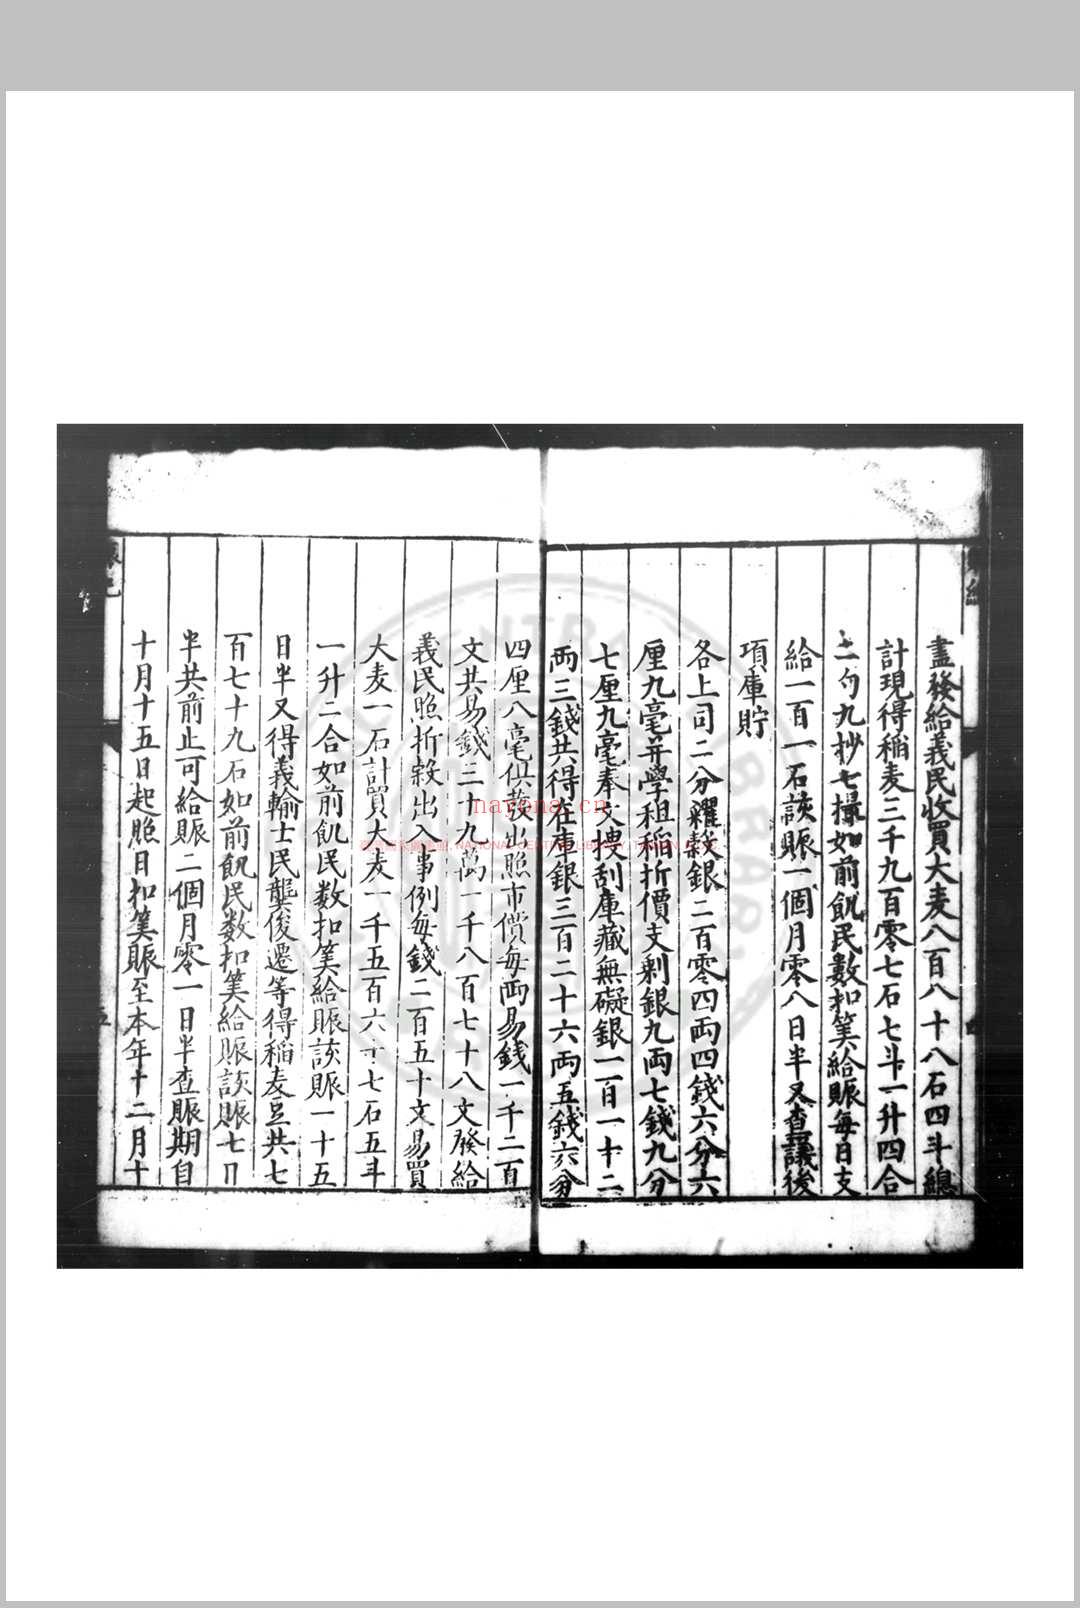 盡發給義民收買大麦八百八十八石四斗總
計現得稲麦三千九百零七石七斗一升四合
二勺九抄七撮如前飢民數扣筭給賑每日支
給一百一石該賑一個月零八日半又查議後
項庫貯
各上司二分糴穀銀二百零四両四錢六分六
厘九毫并學租稲折價支剰銀九両七錢九分
七厘九毫奉文搜刮庫藏無礙銀一百一十二
両三錢共得在庫銀三百二十六両五錢六分
四厘八毫俱發出照市價每両易錢一千二百
文共易錢三十九萬一千八百七十八文發給
義民照折糓出入事例每錢二百五十文易買
大麦一石計買大麦一千五百六十七石五斗
一升二合如前飢民数扣筭給賑該賑一十五
日半又得義輸士民龔俊遷等得稲麦豆共七
百七十九石如前飢民数扣筭給賑該賑七日
半共前止可給賑二個月零一日半查賑期自
十月十五日起照日扣筭賑至本年十二月十
nayona.cn
NATIONAL CENTRAL LIBRARY